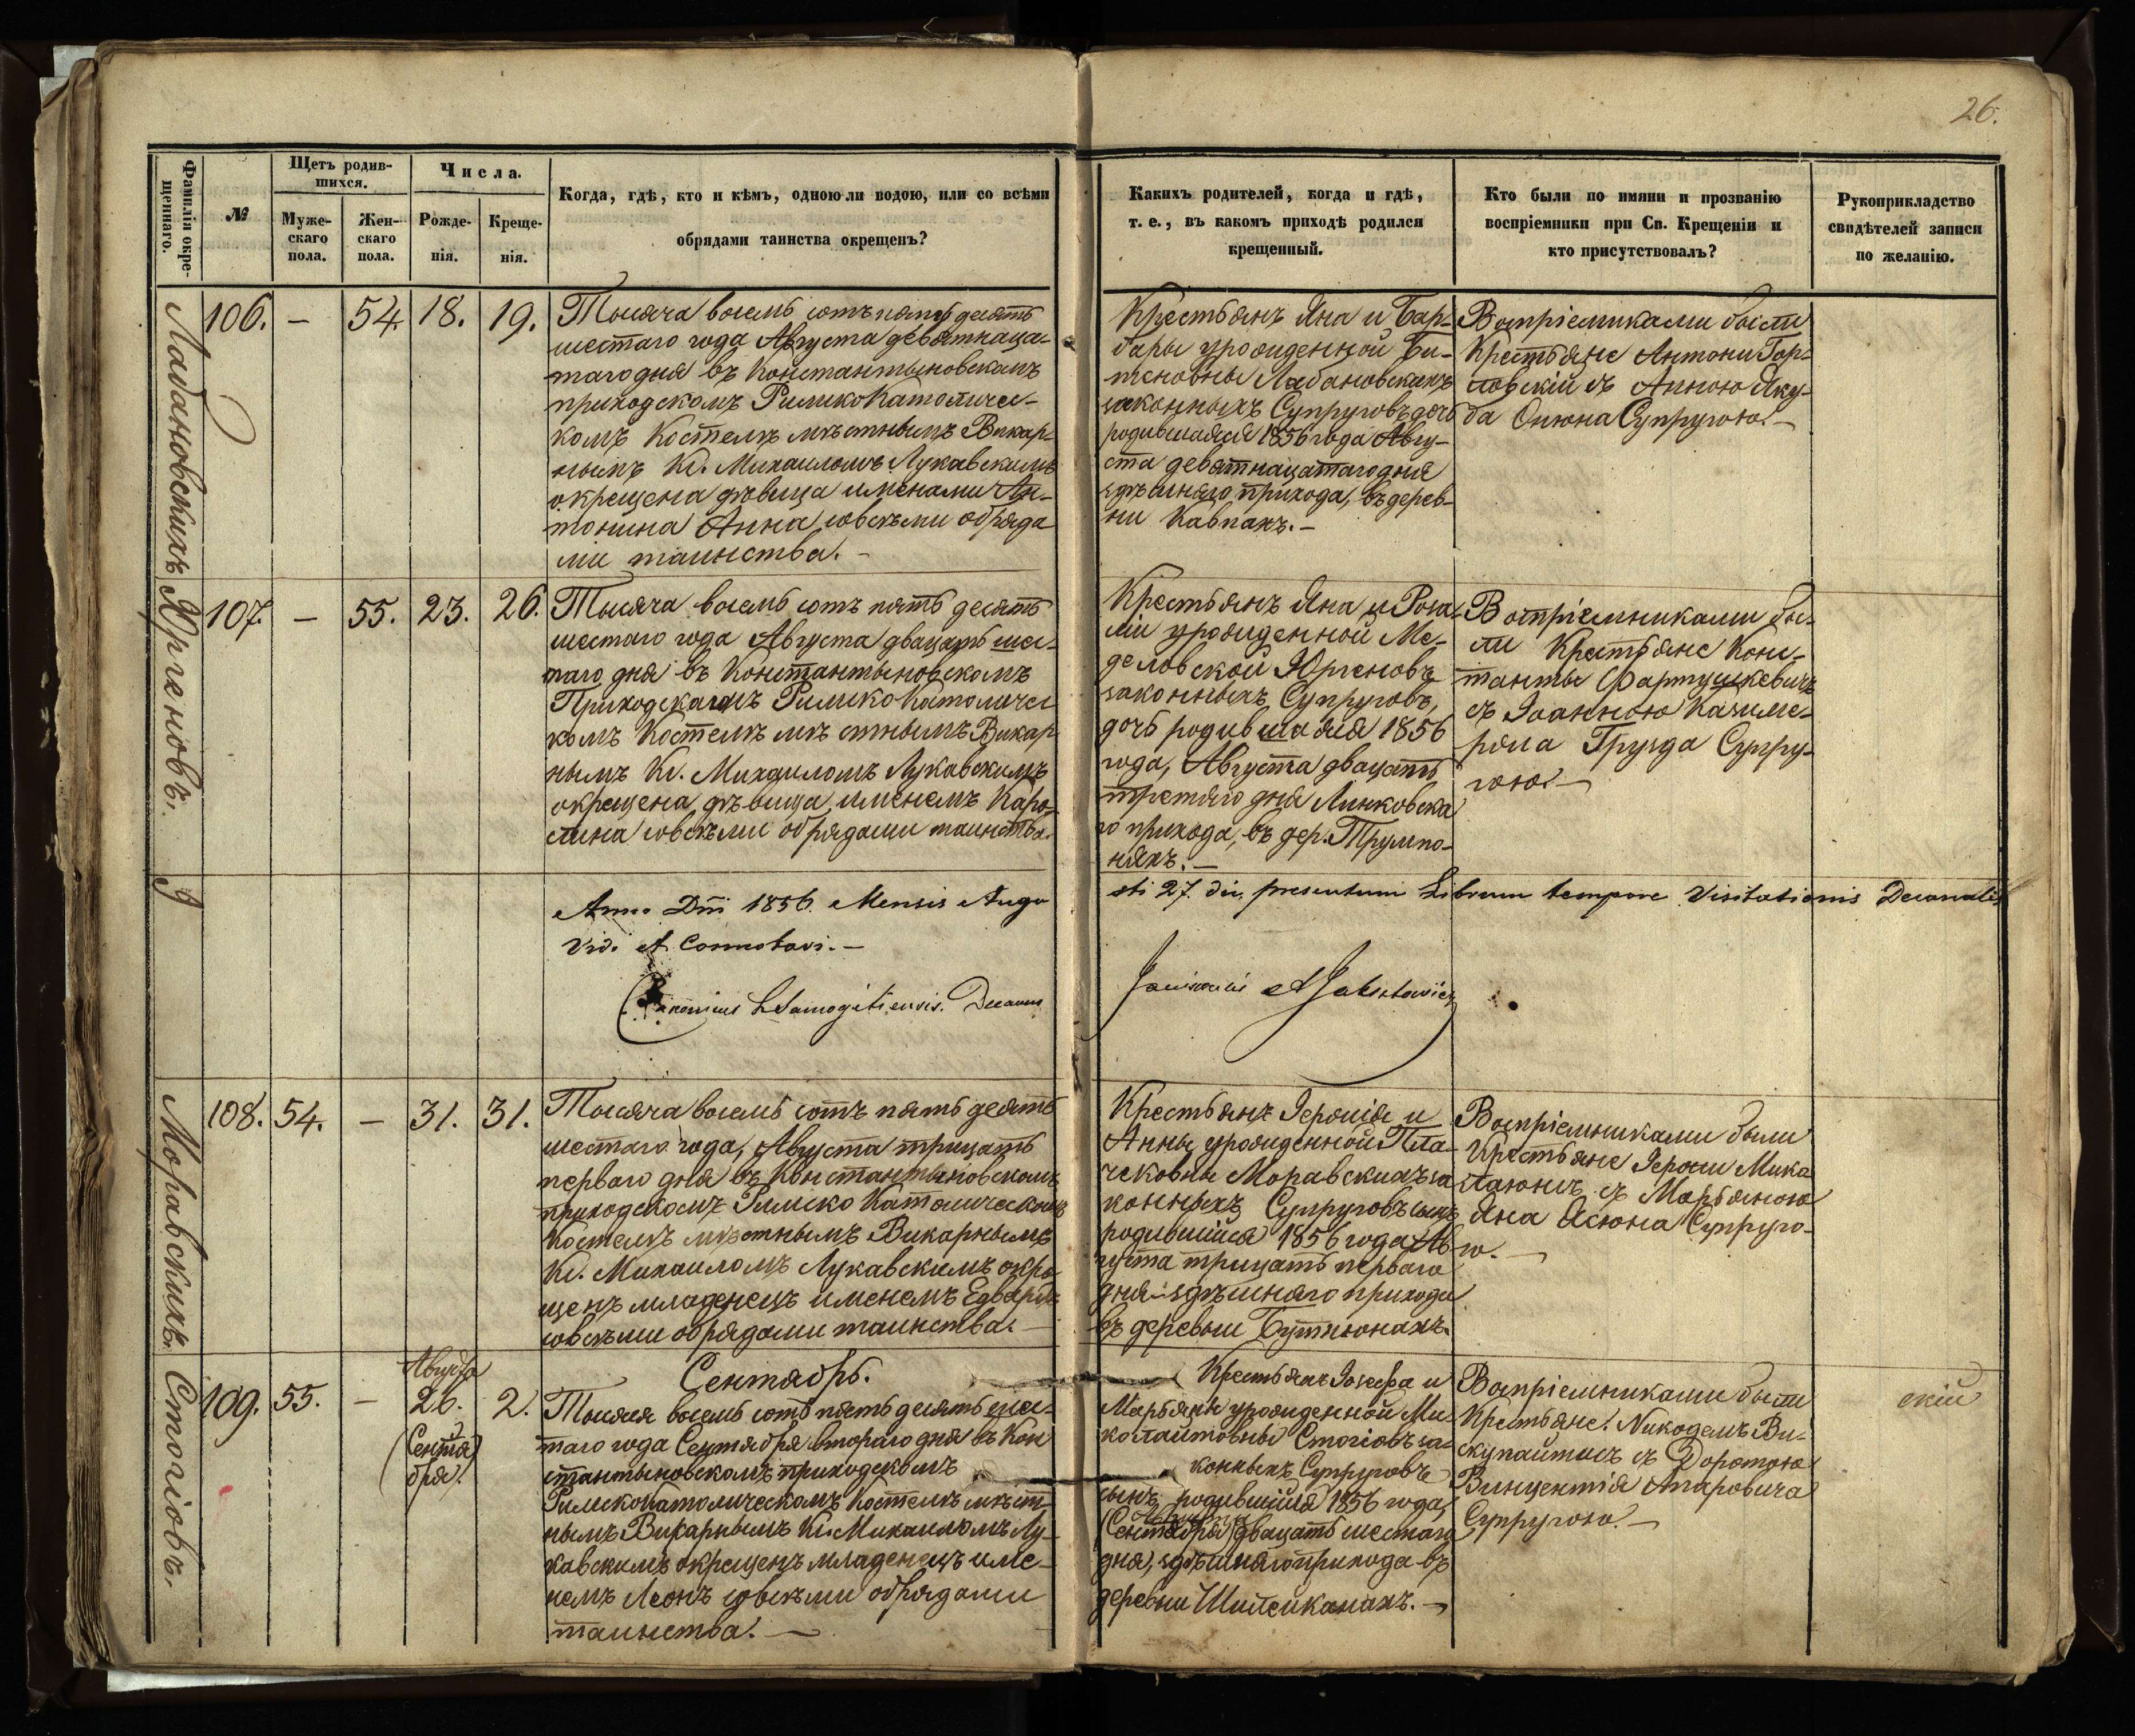 26.
Фамилія окре-
щеннаго.
№
Щетъ родив-
шихся.
Муже-
скаго
пола.
Жен-
скаго
пола.
Числа.
Рожде-
нія.
Креще-
нія.
Когда, гдѣ, кто и кѣмъ, одною ли водою, или со всѣми
обрядами таинства окрещенъ?
Какихъ родителей, когда и гдѣ,
т. е., въ какомъ приходѣ родился
крещенный.
Кто были по имяни и прозванію
воспріемники при Св. Крещеніи и
кто присутствовалъ?
Рукоприкладство
свидѣтелей записи
по желанію.
Лабановскихъ
106. — 54. 18. 19.
Тысяча восемь сотъ пять десять
шестаго года Августа девятнаца-
таго дня въ Константыновскомъ
приходскомъ Римско Католичес-
комъ Костелѣ мѣстнымъ Викар-
нымъ Кс. Михаиломъ Лукавскимъ
окрещена дѣвица именами Ан-
тонина Анна, совсѣми обряда
ми таинства. —
Крестьянъ Яна и Бар-
бары урожденной Би-
теновны Лабановскихъ
законныхъ Супруговъ дочь
родившаяся 1856 года Авгу-
ста девятнацатаго дня
здѣшняго прихода, въ дерев-
ни Кавпакъ. —
Воспріемниками были
Крестьяне Антони Гор-
ловскій съ Анною Яку-
ба Онюна Супругою. —
Юргеновъ.
107. — 55. 23. 26.
Тысяча восемь сотъ пять десять
шестаго года Августа двацать шес-
таго дня въ Константыновскомъ
Приходскомъ Римско Католичес
комъ Костелѣ мѣстнымъ Викар
нымъ Кс. Михаиломъ Лукавскимъ
окрещена дѣвица, именемъ Каро-
лина совсѣми обрядами таинства.
Крестьянъ Яна и Роза-
ліи урожденной Ме-
деловской Юргеновъ
законныхъ Супруговъ,
дочь родившаяся 1856
года, Августа двацать
третяго дня Линковска
го прихода, въ дер. Трумпо-
няхъ. —
Воспріемниками бы-
ли Крестьяне Конс-
танты Фартушкевичъ
съ Іоанною Казиме-
ряна Грузда Супру-
гою. —
Anno Dni 1856. Mensis Augu
sti 27. die, presentem Librum tempore Visitationis Decanalis
Vidi et Connotavi. —
Canonicus Samogitiensis. Decanus
Моравскихъ.
108. 54. — 31. 31.
Тысяча восемь сотъ пять десять
шестаго года, Августа трицать
перваго дня въ Константыновскомъ
приходскомъ Римско Католическомъ
Костелѣ мѣстнымъ Викарнымъ
Кс. Михаиломъ Лукавскимъ окре
щенъ младенецъ именемъ Едвардъ
совсѣми обрядами таинства. —
Крестьянъ Героніа и
Анны урожденной Пла-
чековны Моравскихъ за
конныхъ Супруговъ сынъ
родившійся 1856 года Ав
густа трицать перваго
дня здѣшняго прихода
въ деревни Бутнюнахъ.
Воспріемниками были
Крестьяне Герони Мика
лаюнъ съ Марьяною
Яна Асюна Супруго-
ю. —
Стогіовъ.
Сентябрь.
109. 55. — Августа
26.
(Сентя
бря)
2.
Тысяча восемь сотъ пять десять шес-
таго года Сентября втораго дня въ Кон
стантыновскомъ приходскомъ
Римскокатолическомъ Костелѣ мѣст
нымъ Викарнымъ Кс. Михаиломъ Лу-
кавскимъ окрещенъ младенецъ име-
немъ Леонъ совсѣми обрядами
таинства. —
Крестьянъ Іосефа и
Марьяны урожденной Ми-
колаитовны Стогіовъ за-
конныхъ Супруговъ
сынъ, родившійся 1856 года,
Августа
(Сентября) двацать шестаго
дня, здѣшняго прихода въ
деревни Шилейканахъ. —
Воспріемниками были
Крестьяне: Никодемъ Ви-
скупайтисъ съ Доротою
Винцентія Апаровича
Супругою. —
скій